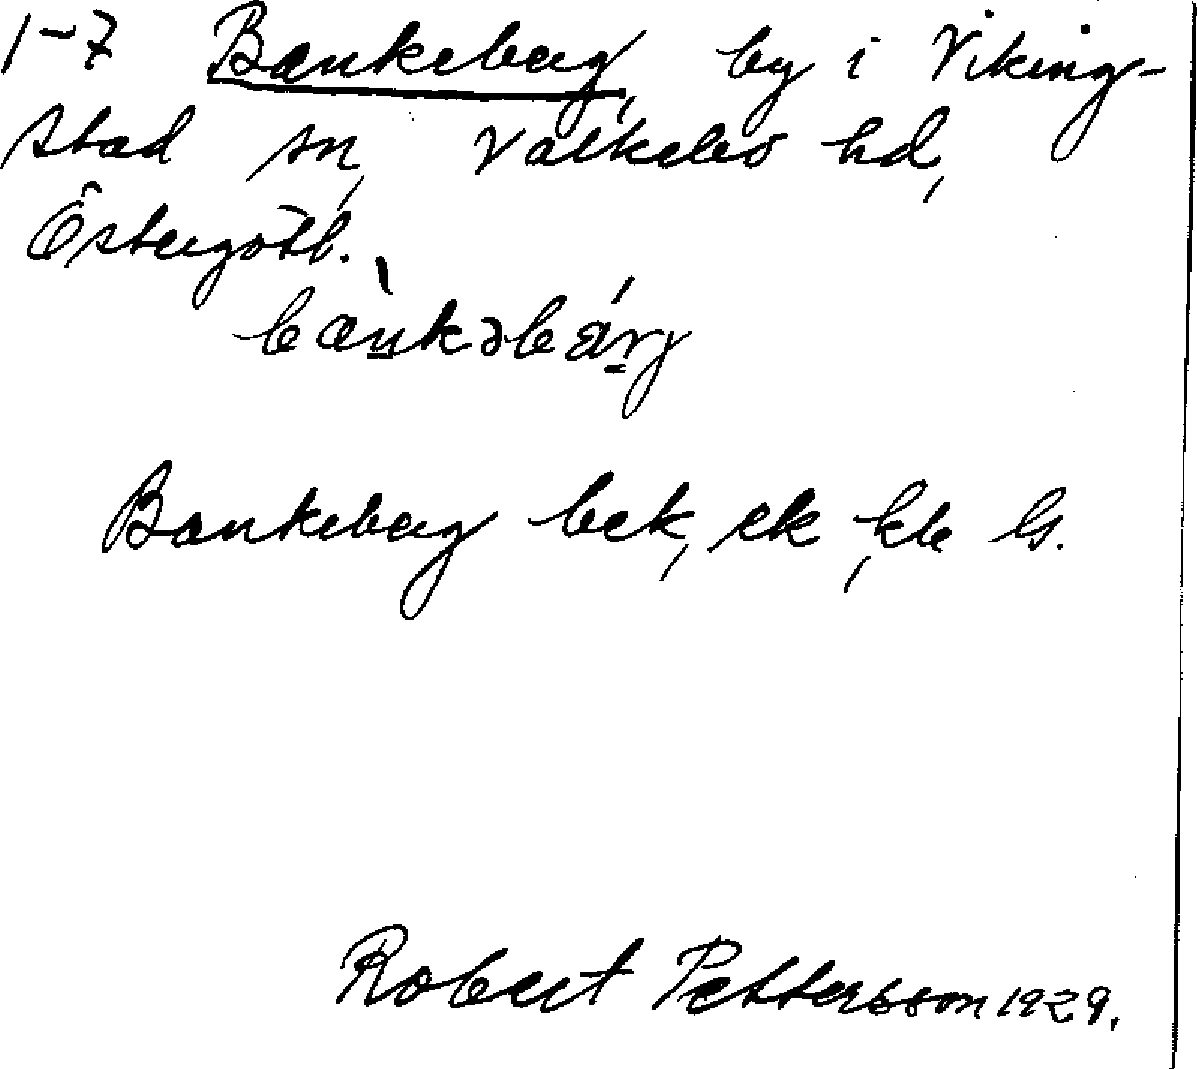 1-7 Bankeberg, by i Viking-
stad sn, Valkebo hd,
Östergötl.
bànkəbárj
Bankeberg bek, ek, kb G.
Robert Pettersson 1929.